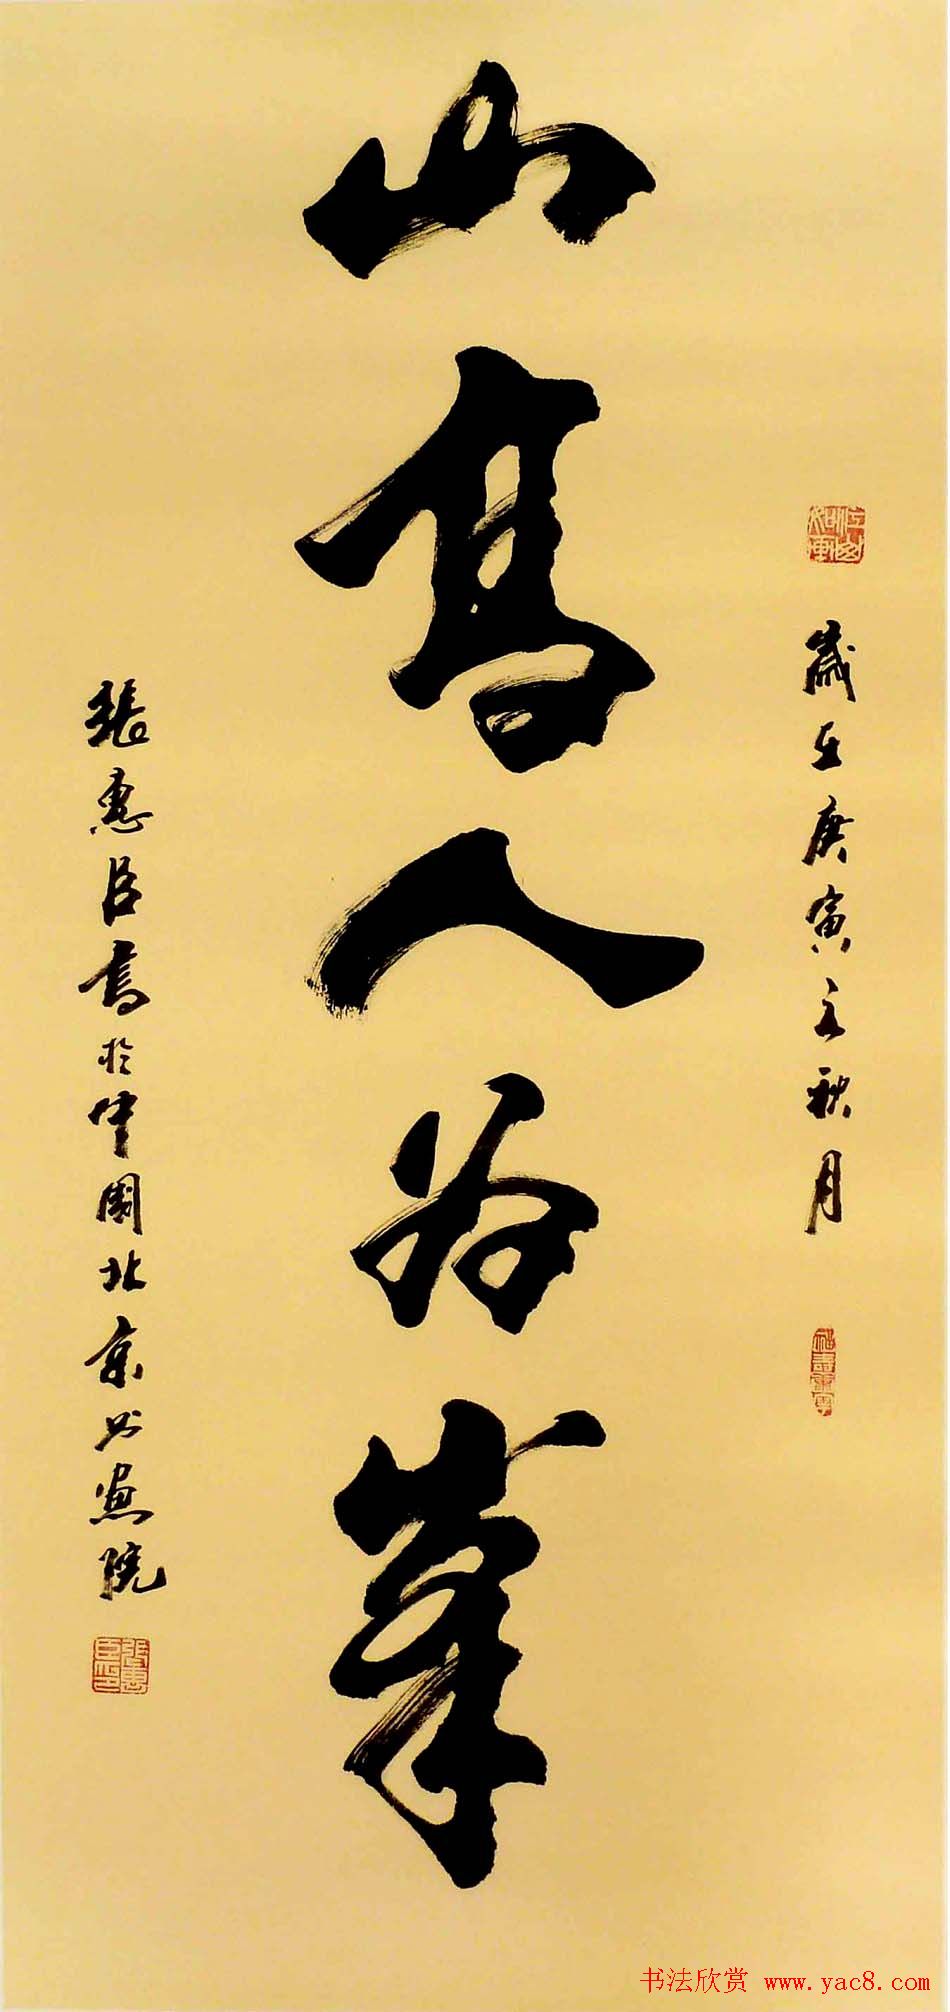 歲在庚寅之秋月
山高人為峯
張惠臣書於中國北京书畫院
张惠臣印
书法欣赏 www.yac8.com